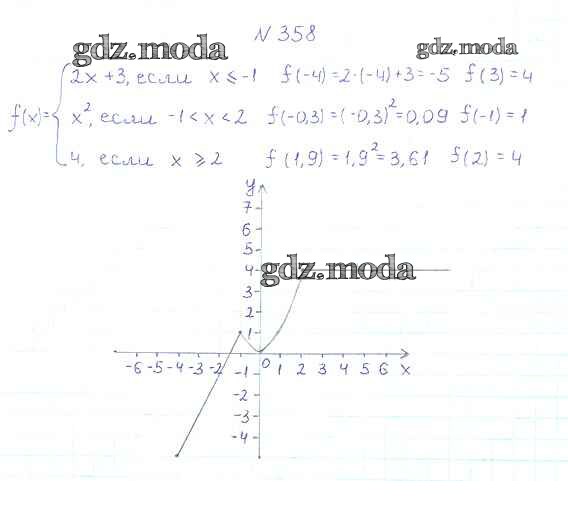 N 358
gdz.moda gdz.moda
2x+3, если x ≤ -1 f(-4)=2·(-4)+3=-5 f(3)=4
f(x)= x², если -1<x<2 f(-0,3)=(-0,3)²=0,09 f(-1)=1
4, если x ≥ 2 f(1,9)=1,9²=3,61 f(2)=4
y
7
6
5
4
gdz.moda
3
2
1
-6 -5 -4 -3 -2 -1 0 1 2 3 4 5 6 x
-2
-3
-4